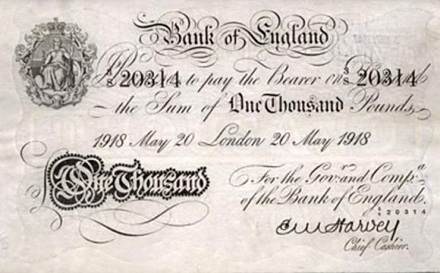 Bank of England
3/S 20314 to pay the Bearer on 3/S 20314
the Sum of One Thousand Pounds
1918 May 20 London 20 May 1918
For the Govr. and Compa.
One Thousand
of the Bank of England.
20314
E M Harvey
Chief Cashier.